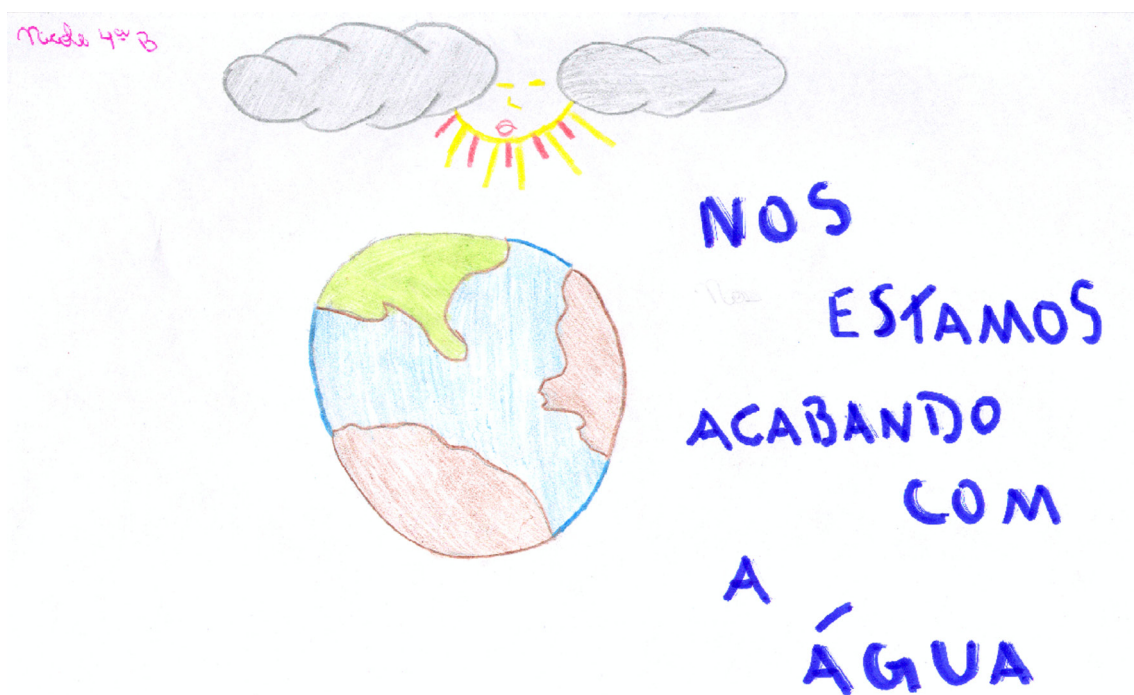 Nicole 4ª B
NOS
ESTAMOS
ACABANDO
COM
A
ÁGUA